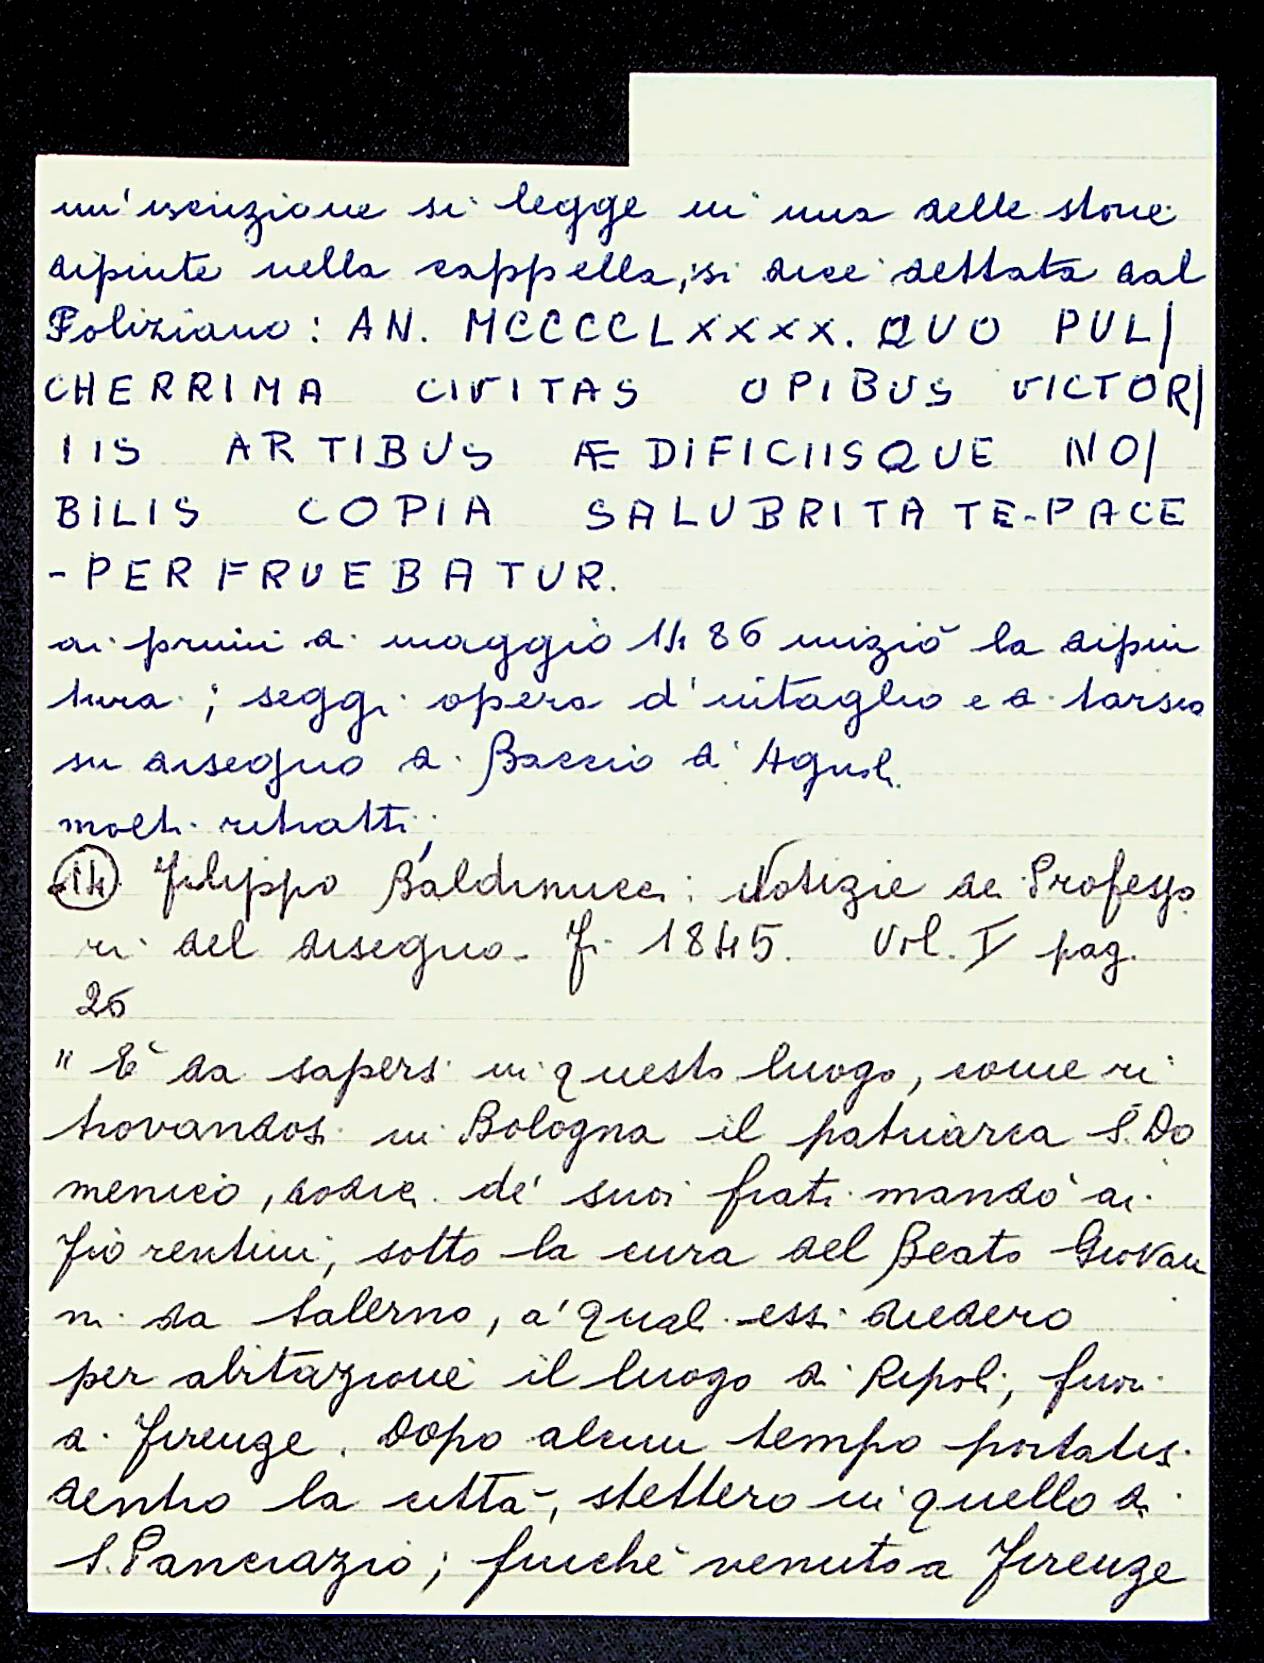 un'iscrizione si legge in una delle storie
dipinte nella cappella, si dice dettata dal
Poliziano: AN. MCCCCLXXXX. QUO PUL/
CHERRIMA CIVITAS OPIBUS VICTOR/
IIS ARTIBUS ÆDIFICIISQUE NO/
BILIS COPIA SALUBRITATE-PACE
-PERFRUEBATUR.
ai primi di maggio 1486 iniziò la dipin
tura; seggi opera d'intaglio e di tarsia
su disegno di Baccio d'Agnoli.
molti ritratti;
14 Filippo Baldinucci: Notizie dei Professo
ri del disegno. Fi 1845. Vol. V pag.
26
"È da sapersi in questo luogo, come ri
trovandosi in Bologna il patriarca S. Do
menico, dodici de' suoi frati mandò ai
fiorentini, sotto la cura del Beato Giovan
ni da Salerno, a' quali essi diedero
per abitazione il luogo di Ripoli, fuori
di Firenze. Dopo alcun tempo portatisi
dentro la città, stettero in quello di
S. Pancrazio; finchè venuto a Firenze